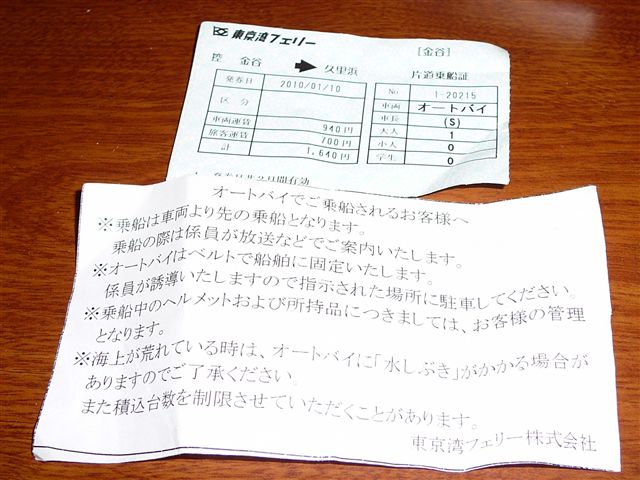 東京湾フェリー
[金谷]
控 金谷 ➡ 久里浜 片道乗船証
発券日 2010/01/10
区分
車両運賃 940円
旅客運賃 700円
計 1,640円
No 1-20215
車両 オートバイ
車長 (S)
大人 1
小人 0
学生 0
オートバイでご乗船されるお客様へ
※乗船は車両より先の乗船となります。
乗船の際は係員が放送などでご案内いたします。
※オートバイはベルトで船舶に固定いたします。
係員が誘導いたしますので指示された場所に駐車してください。
※乗船中のヘルメットおよび所持品につきましては、お客様の管理
となります。
※海上が荒れている時は、オートバイに「水しぶき」がかかる場合が
ありますのでご了承ください。
また積込台数を制限させていただくことがあります。
東京湾フェリー株式会社